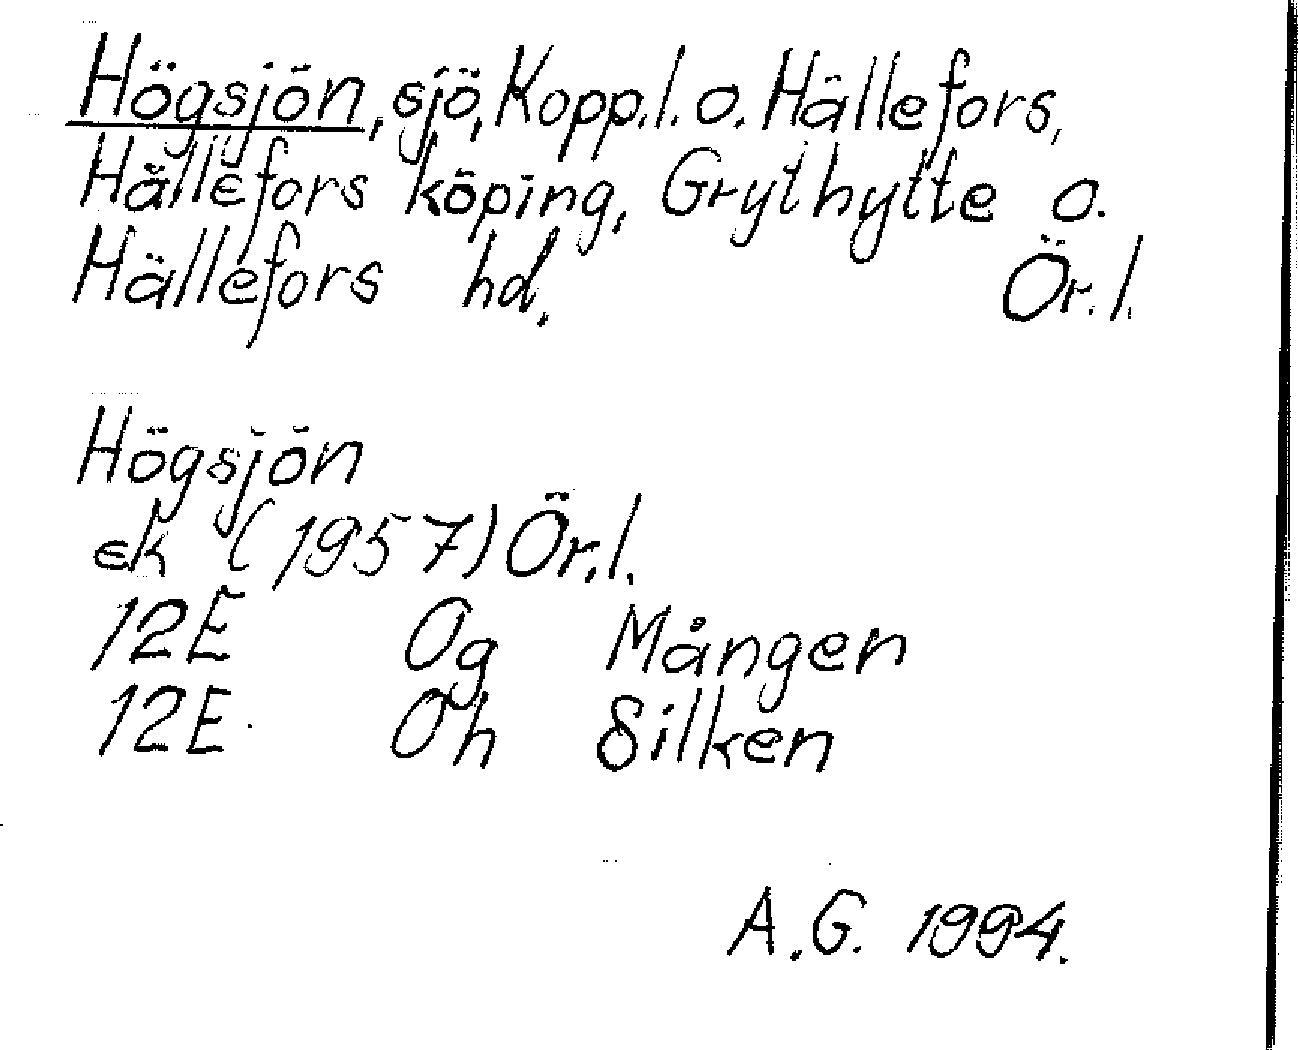 Högsjön, sjö, Kopp.l. o. Hällefors,
Hällefors köping, Grythytte o.
Hällefors hd. Ör.l.
Högsjön
ek (1957) Ör.l.
12E Og Mången
12E Oh Silken
A.G. 1994.